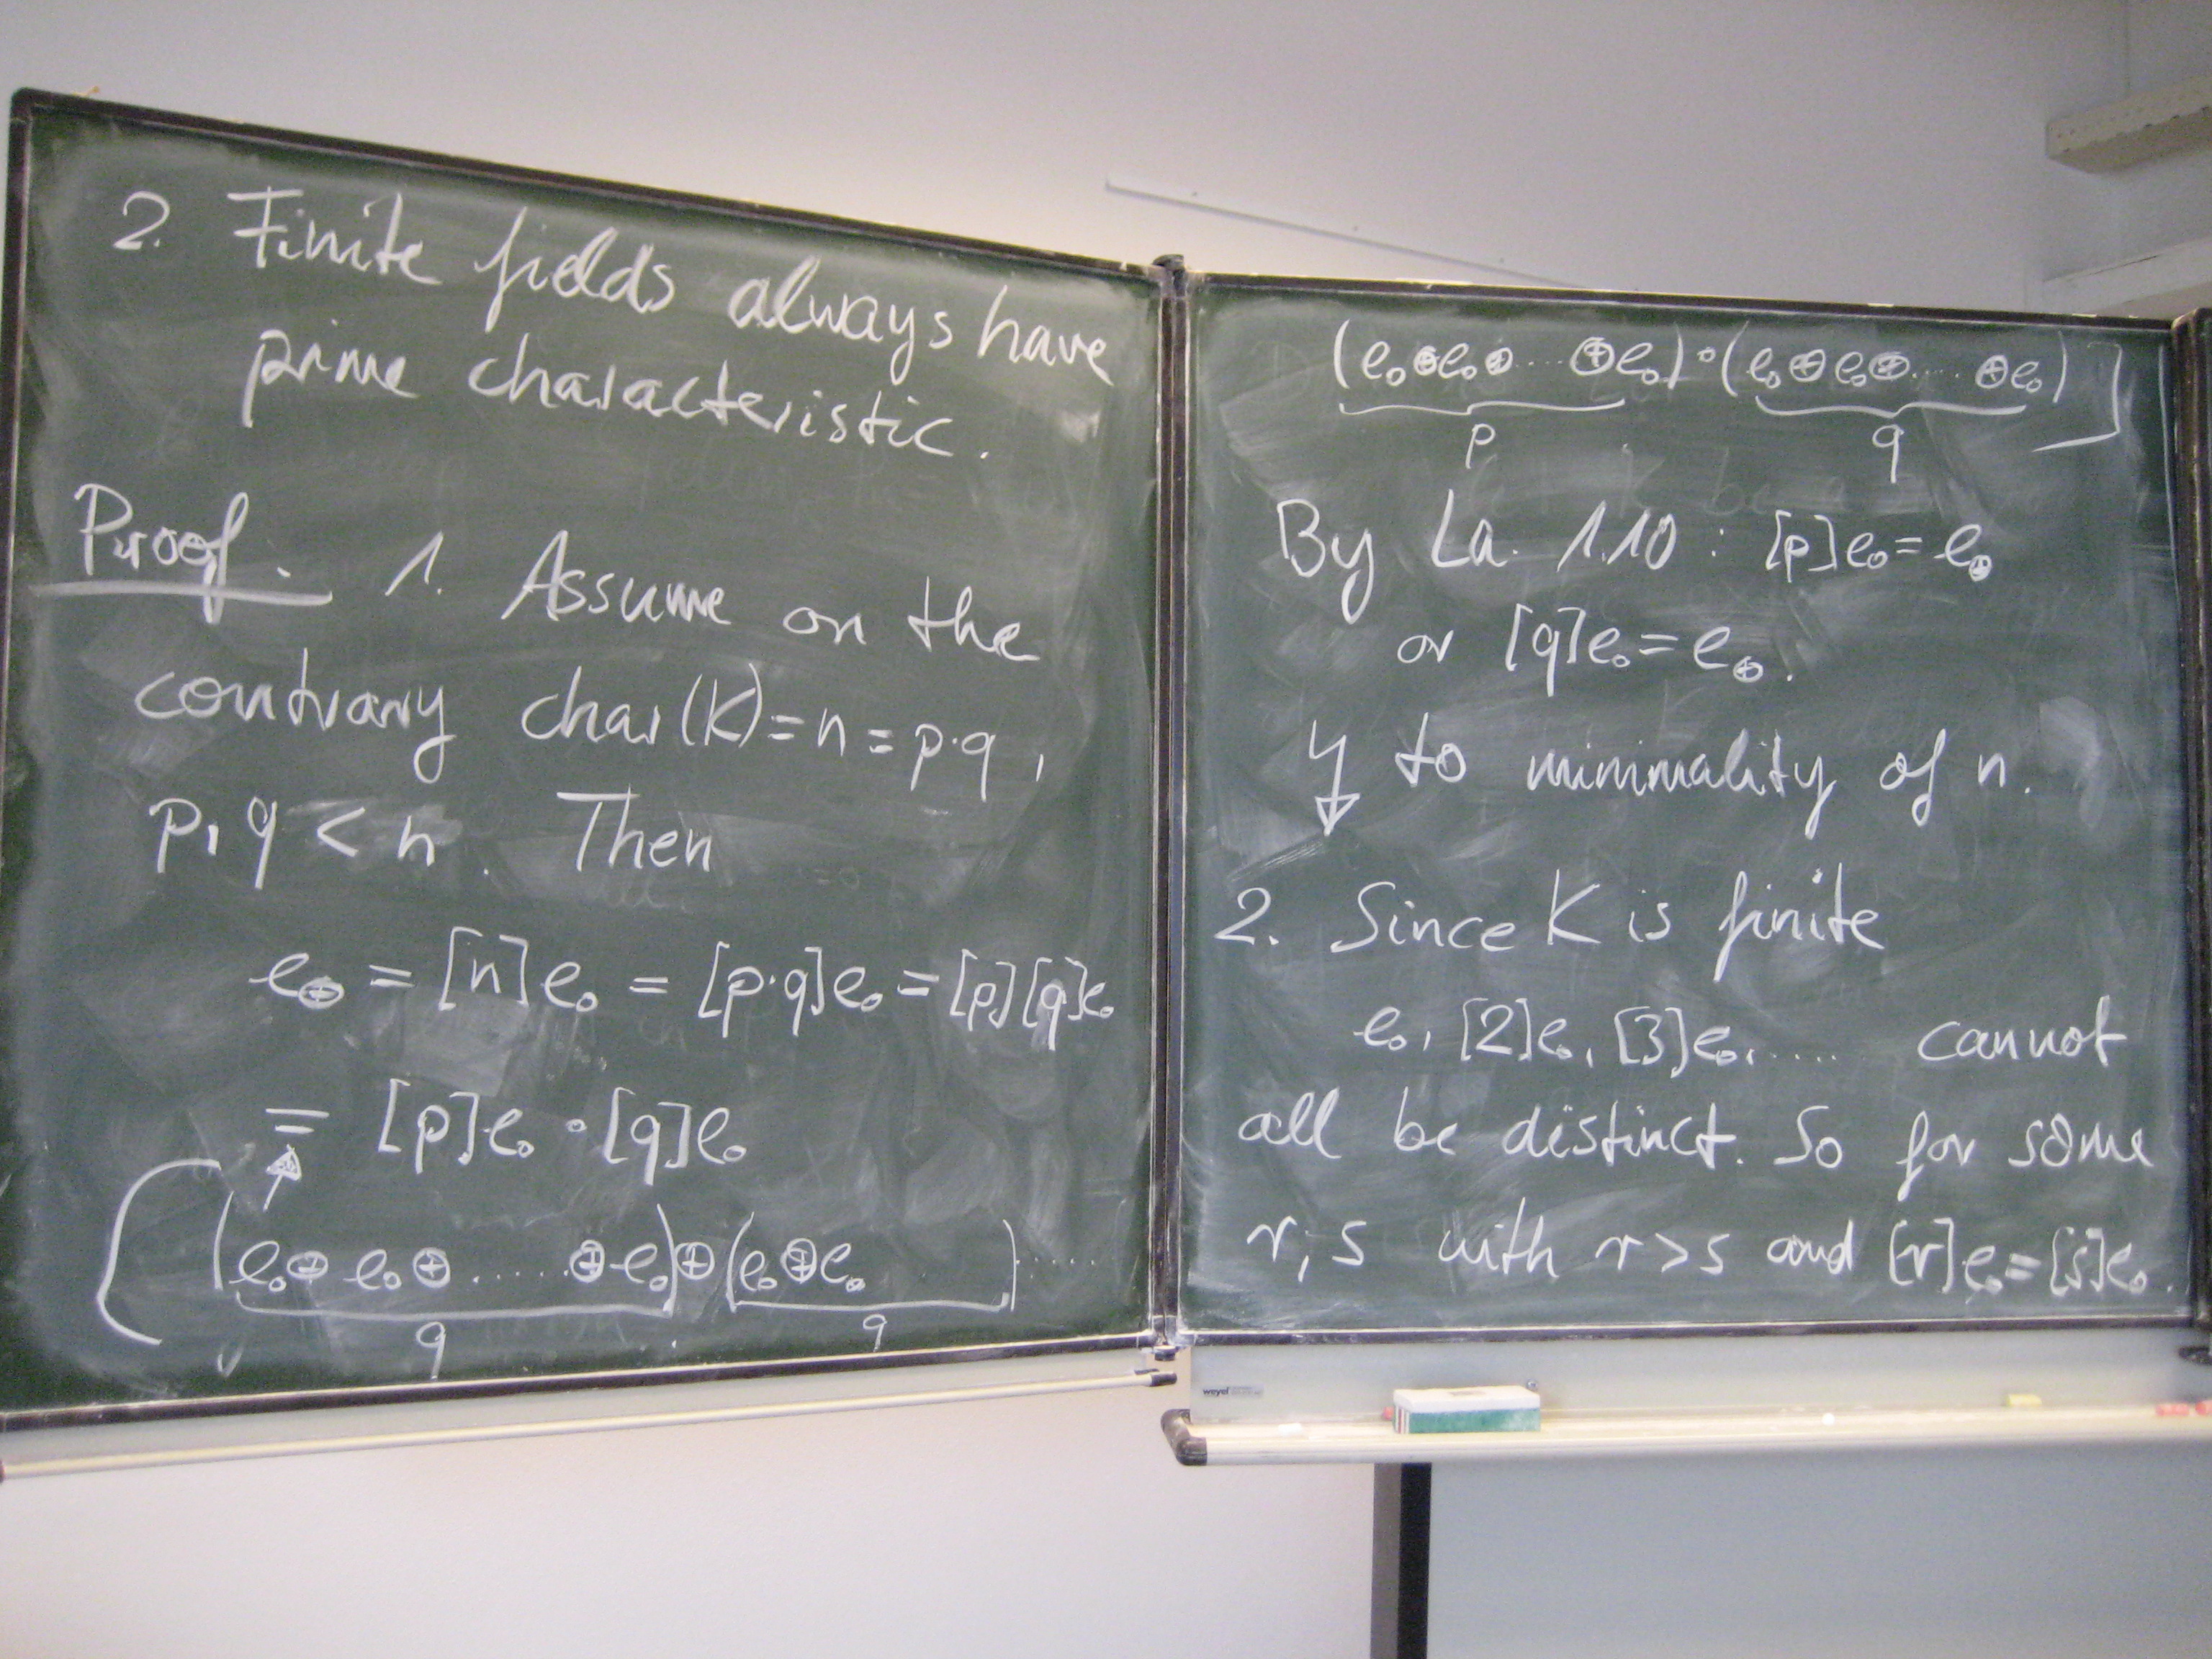 2. Finite fields always have
prime characteristic.
Proof. 1. Assume on the
contrary char(K)=n=p·q,
p, q < n. Then
e⊕ = [n]e∘ = [p·q]e∘ = [p][q]e∘
= [p]e∘ ∘ [q]e∘
(e∘⊕e∘⊕.....⊕e∘)⊕(e∘⊕e∘ ).....
q q
(e∘⊕e∘⊕...⊕e∘)∘(e∘⊕e∘⊕....⊕e∘)
p q
By La. 1.10 : [p]e∘=e⊕
or [q]e∘=e⊕.
↯ to minimality of n.
2. Since K is finite
e∘, [2]e∘, [3]e∘, ..... cannot
all be distinct. So for some
r, s with r>s and [r]e∘=[s]e∘.
weyel